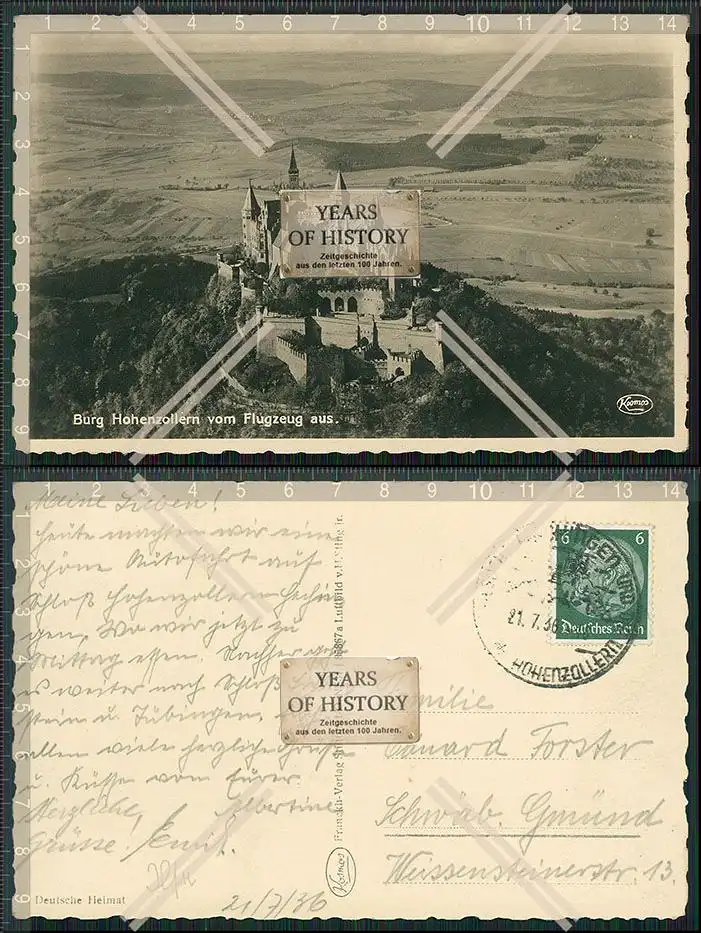 1 2 3 4 5 6 7 8 9 10 11 12 13 14
1
2
3
4
5
6
7
8
9
YEARS
OF HISTORY
Zeitgeschichte
aus den letzten 100 Jahren.
Burg Hohenzollern vom Flugzeug aus.
Kosmos
1 2 3 4 5 6 7 8 9 10 11 12 13 14
1
2
3
4
5
6
7
8
9
Meine Lieben!
Heute machten wir eine
schöne Autofahrt auf
Schloß Hohenzollern Hechin
gen, Wo wir jetzt zu
Mittag essen. Nachher
es weiter nach Schloß
stein u. Tübingen.
allen viele herzliche Grüße
u. Küsse von Eurer
Albertine
Herzliche
Grüsse! Emil.
21/7/36
Deutsche Heimat
Kosmos
Franckh-Verlag
867a Luftbild v.
YEARS
OF HISTORY
Zeitgeschichte
aus den letzten 100 Jahren.
6 6
Deutsches Reich
21.7.36
HOHENZOLLERN
Familie
Eduard Forster
Schwäb. Gmünd
Weissensteinerstr. 13.